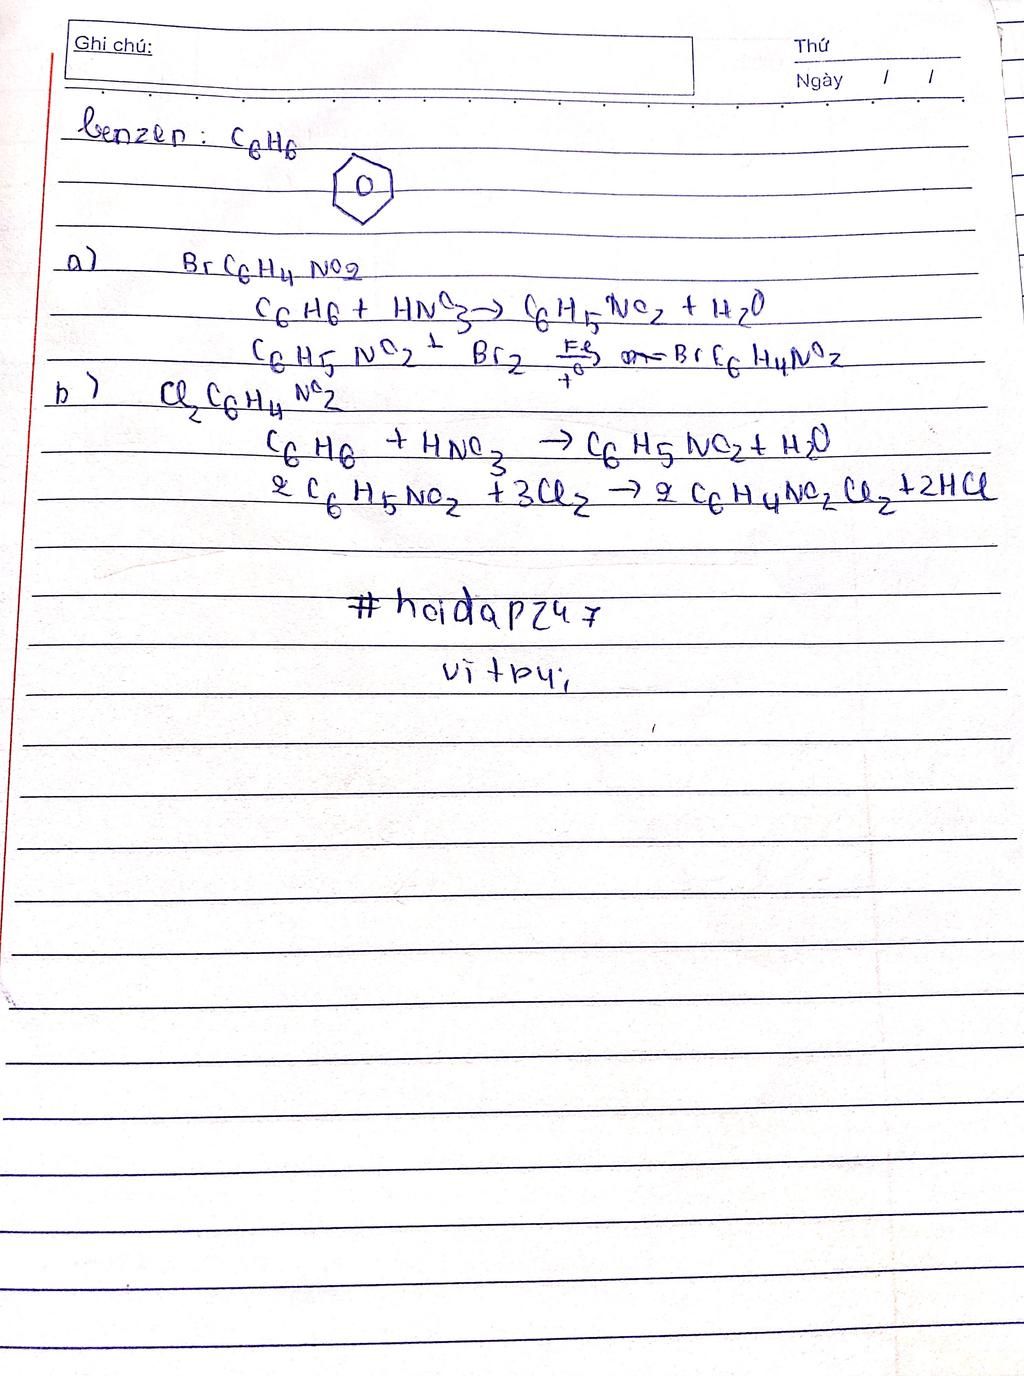 Ghi chú:
Thứ
Ngày / /
benzen: C6H6
a) BrC6H4NO2
C6H6 + HNO3 → C6H5NO2 + H2O
C6H5NO2 + Br2 Fe t° BrC6H4NO2
b) Cl2C6H4NO2
C6H6 + HNO3 → C6H5NO2 + H2O
2C6H5NO2 + 3Cl2 → 2C6H4NO2Cl2 + 2HCl
#hoidap247